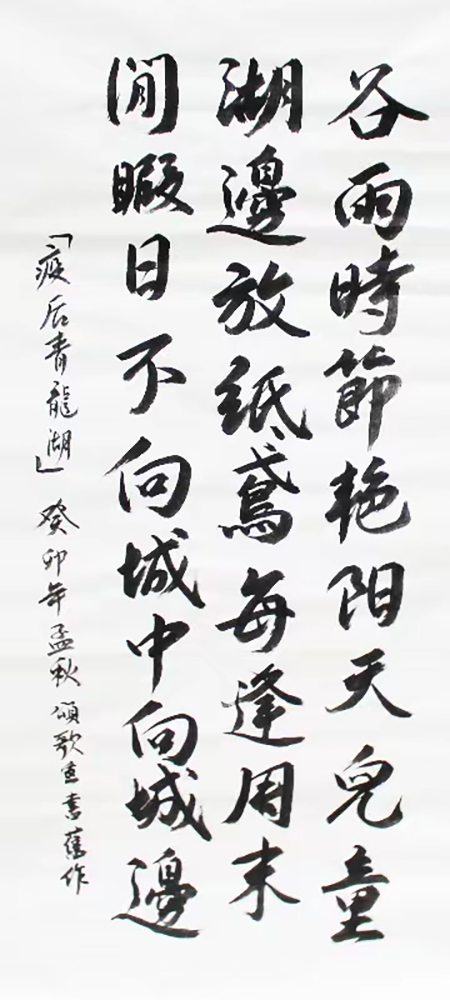 谷雨時節艳阳天兒童
湖邊放紙鳶每逢周末
閒暇日不向城中向城邊
「疫后青龍湖」癸卯年孟秋頌歌重書舊作